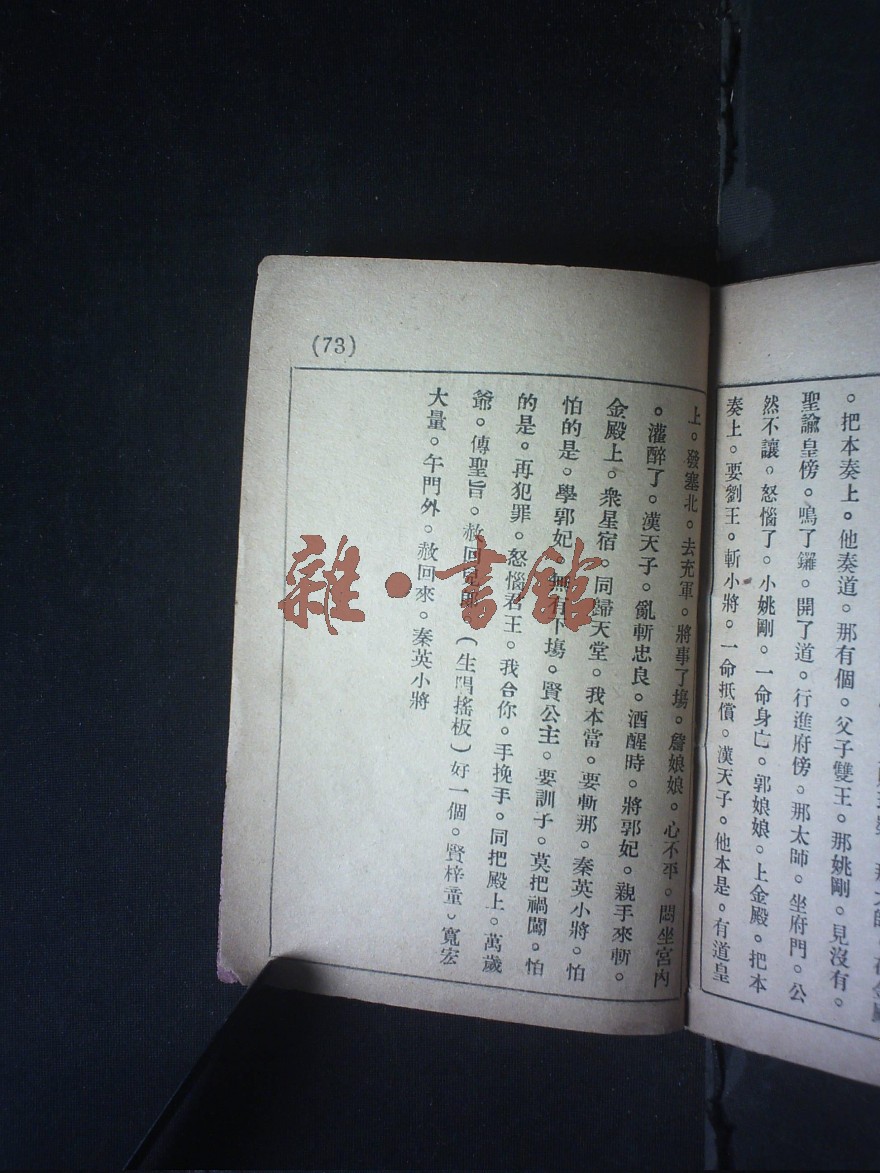 。把本奏上。他奏道。那有個。父子雙王。那姚剛。見沒有。
聖諭皇傍。鳴了鑼。開了道。行進府傍。那太師。坐府門。公
然不讓。怒惱了。小姚剛。一命身亡。郭娘娘。上金殿。把本
奏上。要劉王。斬小將。一命抵償。漢天子。他本是。有道皇
(73)
上。發塞北。去充軍。將事了場。詹娘娘。心不平。悶坐宮內
。灌醉了。漢天子。亂斬忠良。酒醒時。將郭妃。親手來斬。
金殿上。衆星宿。同歸天堂。我本當。要斬那。秦英小將。怕
怕的是。學郭妃。無有下場。賢公主。要訓子。莫把禍闖。怕
的是。再犯罪。怒惱君王。我合你。手挽手。同把殿上。萬歲
爺。傳聖旨。赦回 (生唱搖板)好一個。賢梓童。寬宏
大量。午門外。赦回來。秦英小將
雜·書館